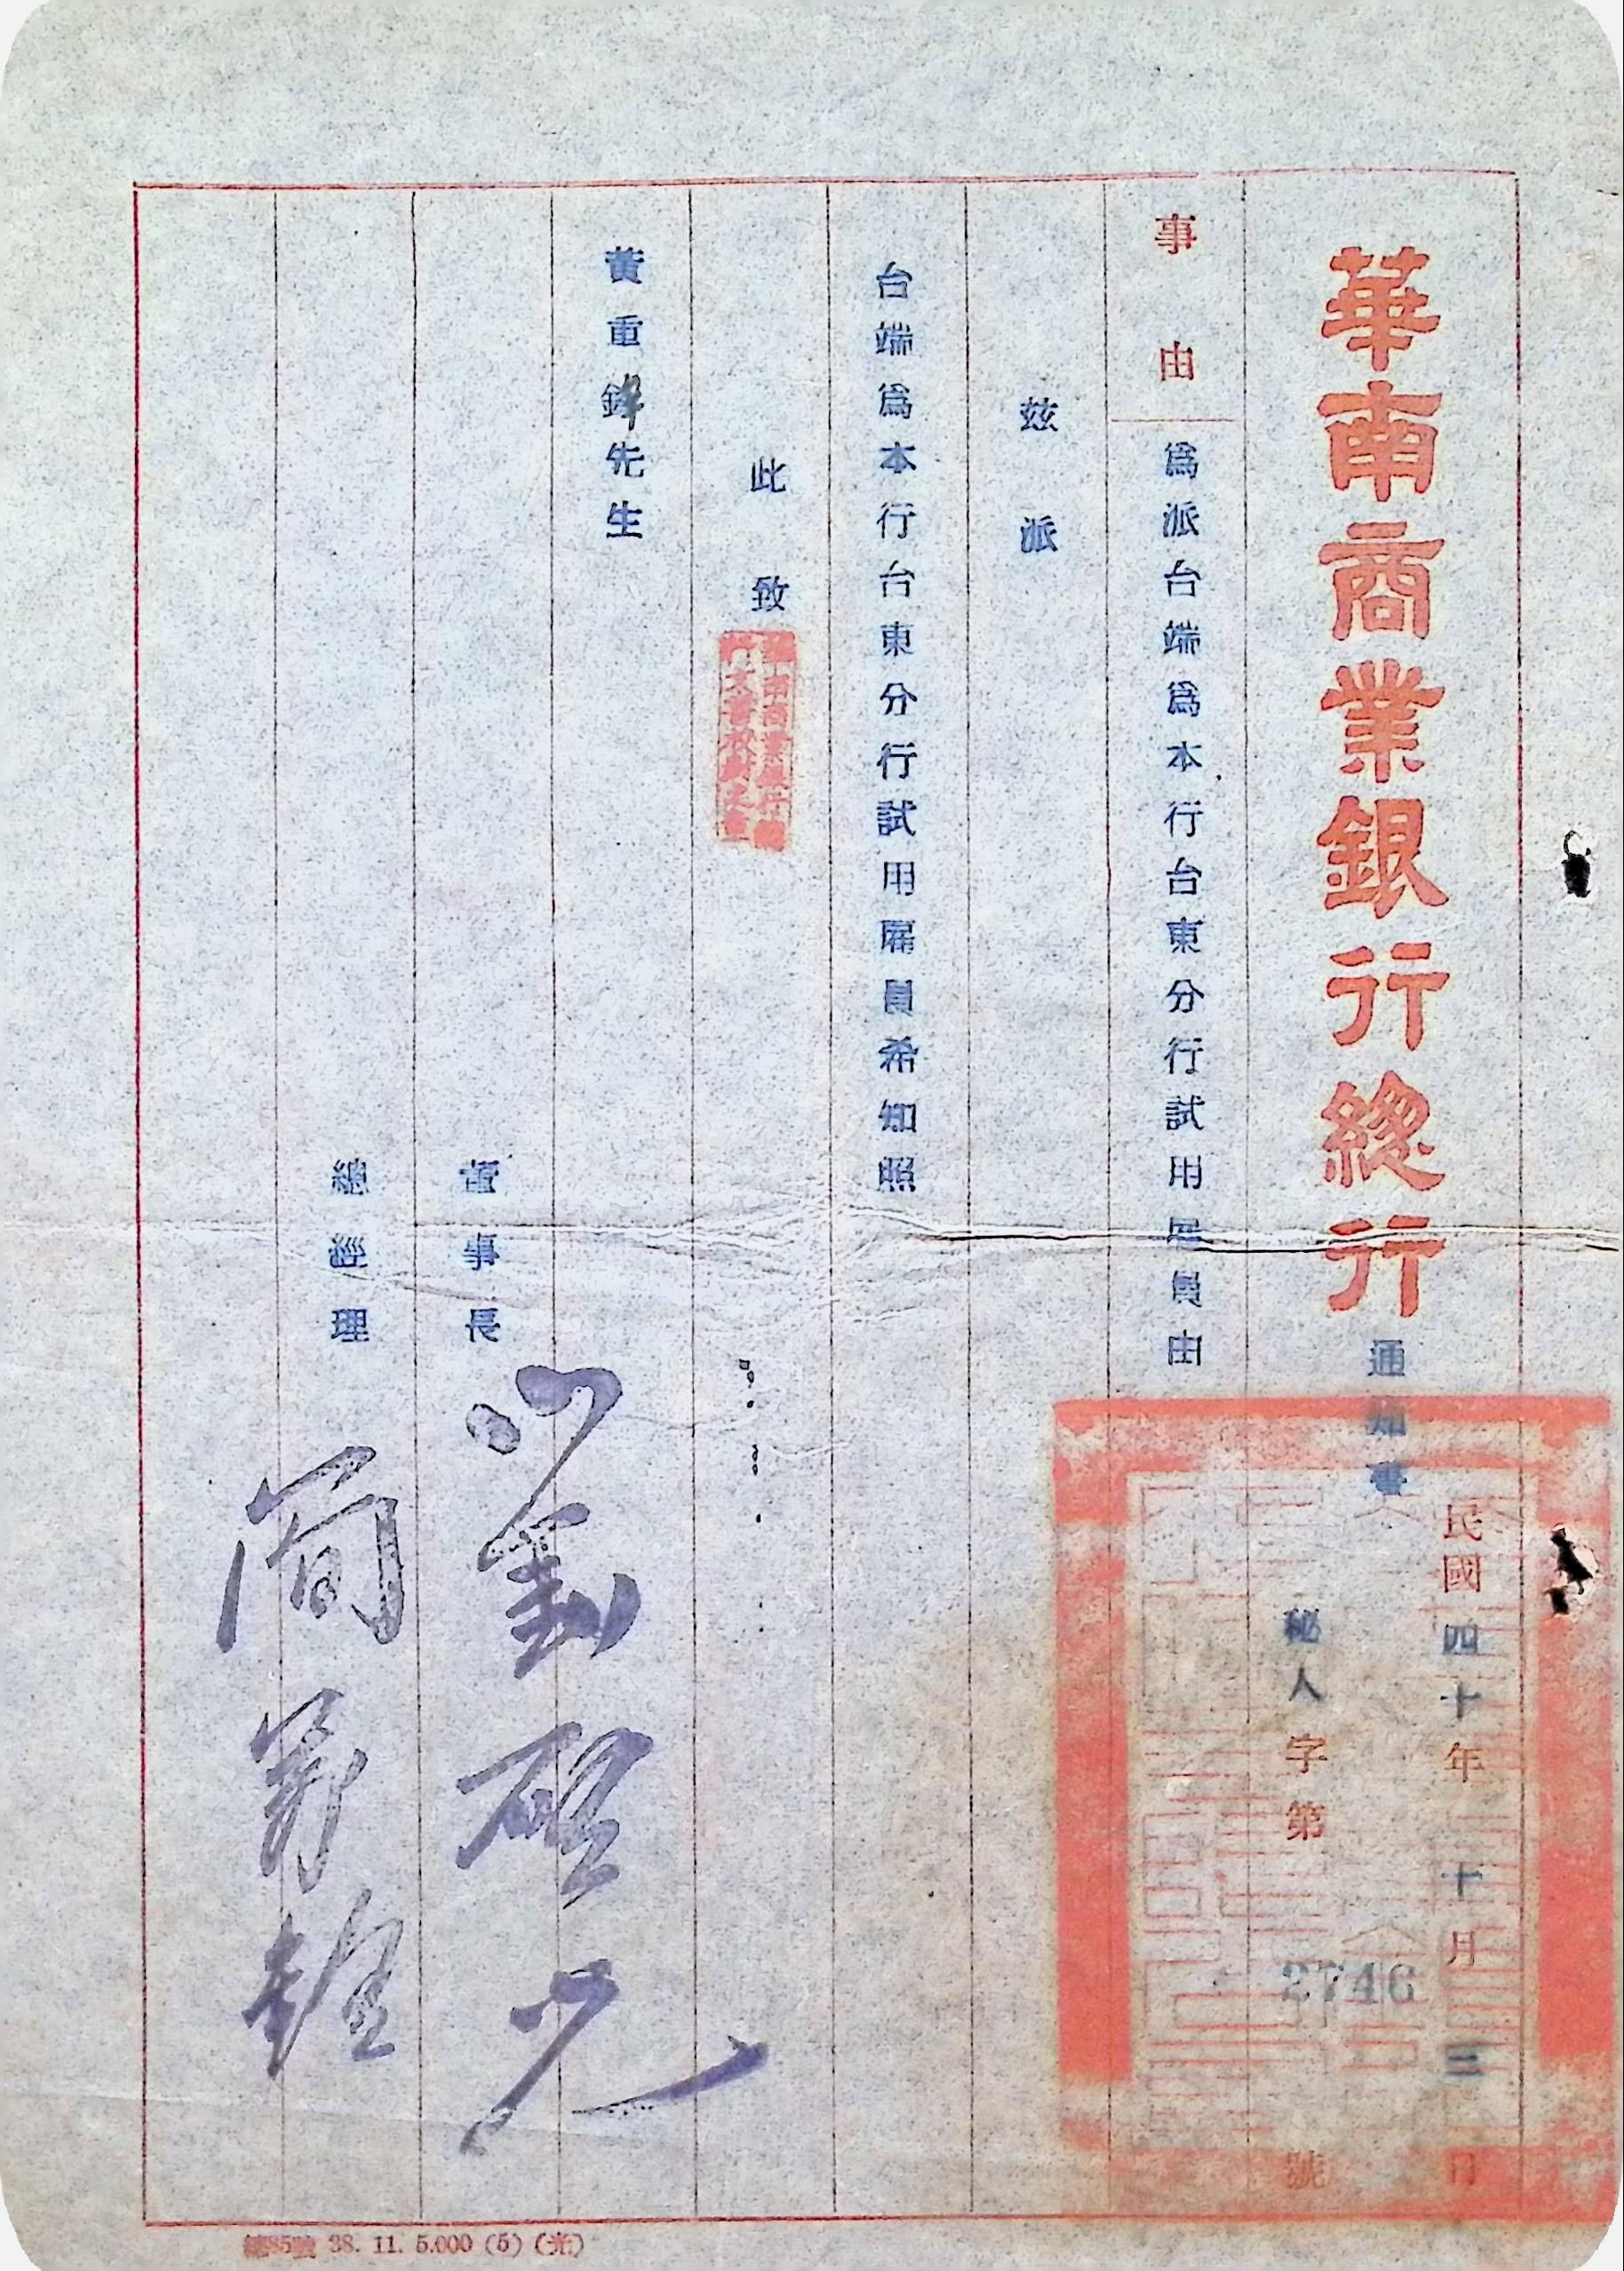 華南商業銀行總行
通知書
民國四十年十月三日
秘人字第2746號
事由
爲派台端爲本行台東分行試用雇員由
茲派
台端爲本行台東分行試用雇員希知照
此致
黃重鋒先生
董事長
劉啓光
總經理
總85號 38. 11. 5.000 (5) (光)